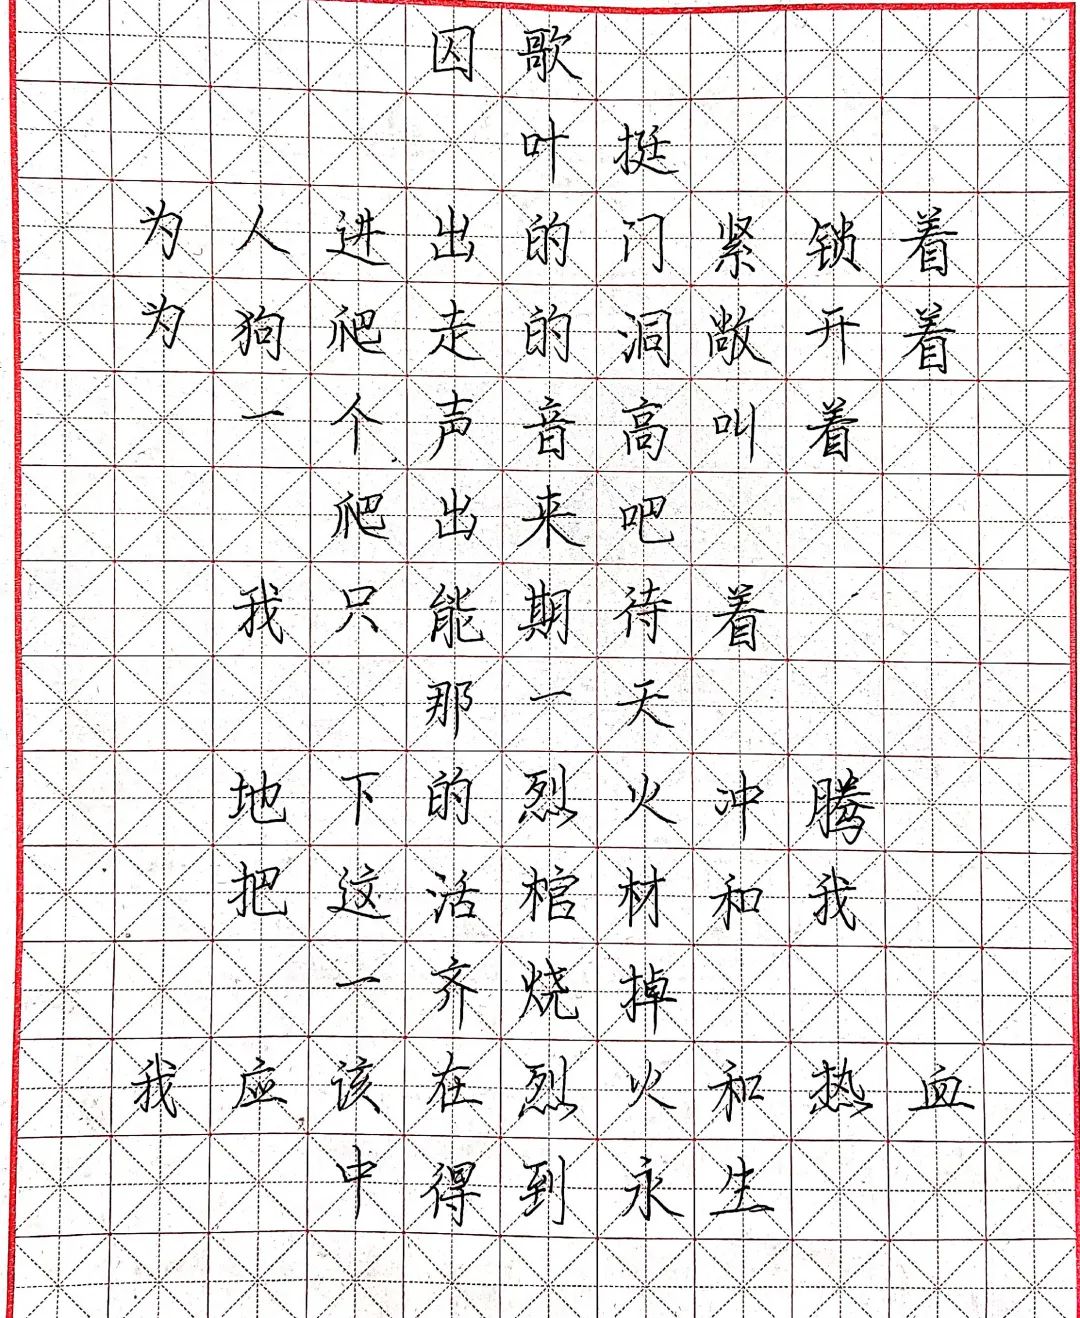 囚歌
叶挺
为人进出的门紧锁着
为狗爬走的洞敞开着
一个声音高叫着
爬出来吧
我只能期待着
那一天
地下的烈火冲腾
把这活棺材和我
一齐烧掉
我应该在烈火和热血
中得到永生